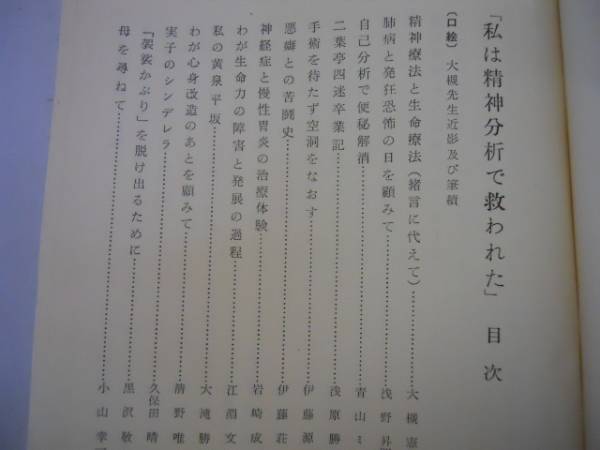 「私は精神分析で救われた」 目次
(口絵) 大槻先生近影及び筆蹟
精神療法と生命療法(緒言に代えて)…………大槻憲
肺病と発狂恐怖の日を顧みて…………浅野昇
自己分析で便秘解消…………青山ミ
二葉亭四迷卒業記…………浅原勝
手術を待たず空洞をなおす…………伊藤源
悪癖との苦闘史…………伊藤荘
神経症と慢性胃炎の治療体験…………岩崎成
わが生命力の障害と発展の過程…………江淵文
私の黄泉平坂…………大滝勝
わが心身改造のあとを顧みて…………清野唯
実子のシンデレラ…………久保田晴
「袈裟かぶり」を脱け出るために…………黒沢敬
母を尋ねて…………小山幸